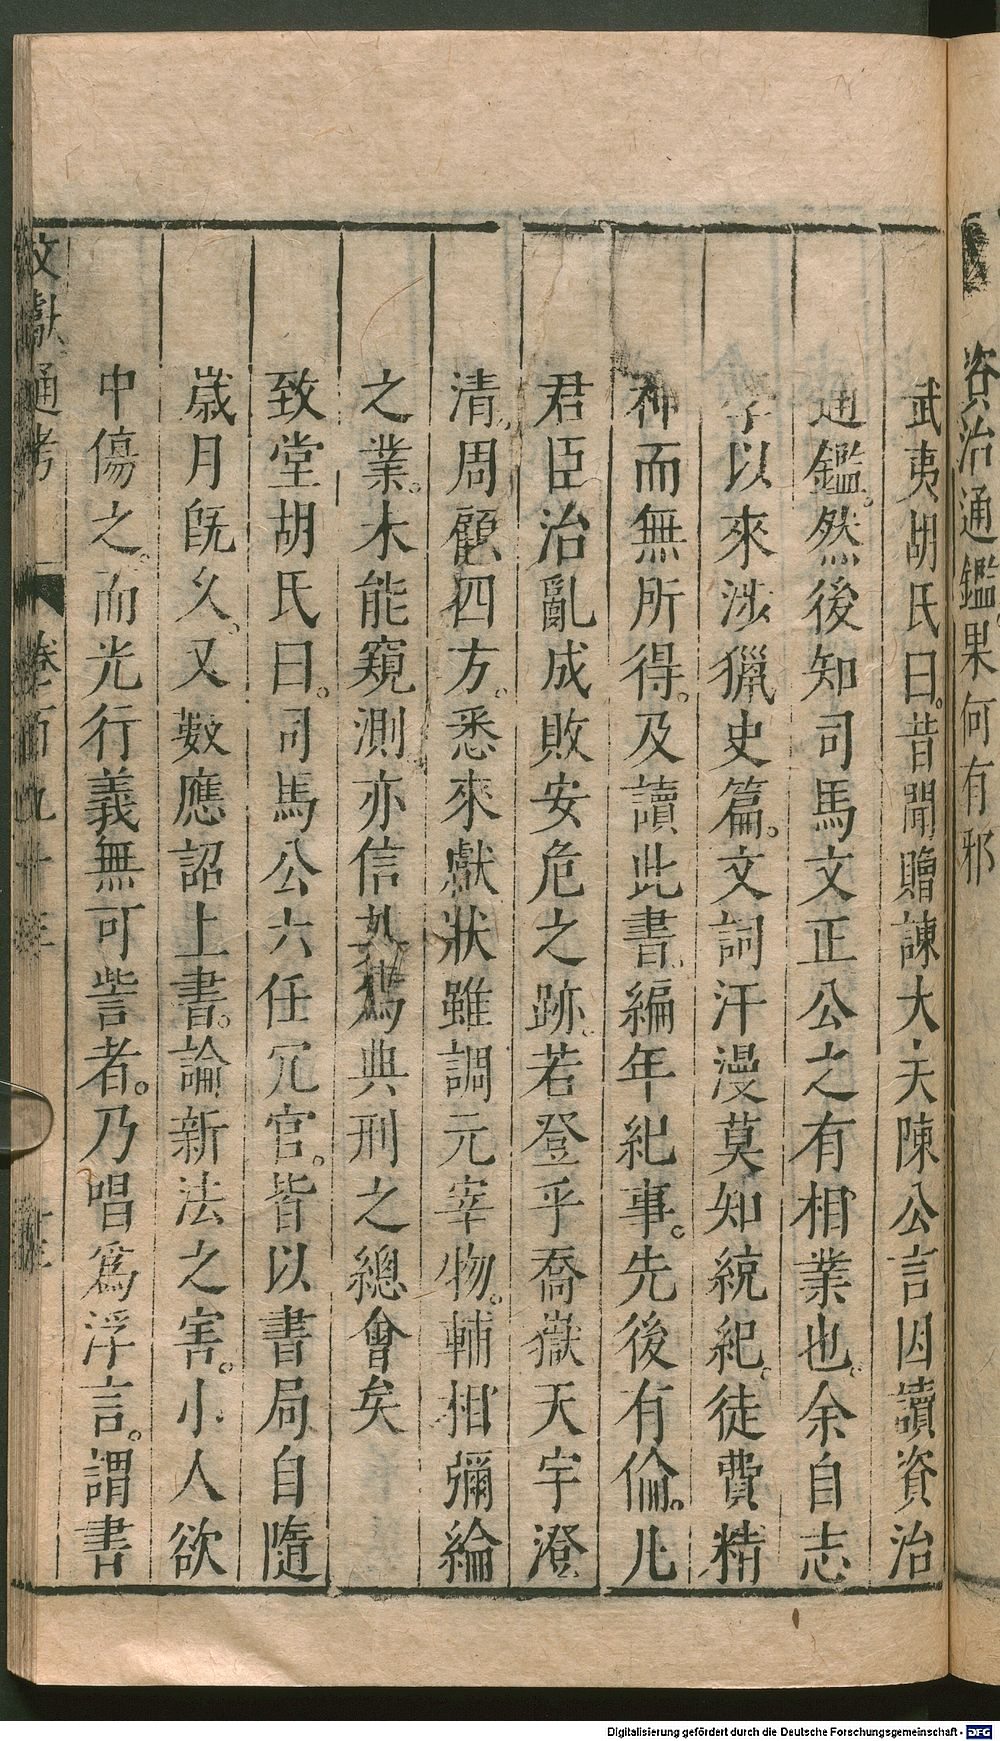 資治通鑑果何有邪
武夷胡氏曰。昔聞贈諫大夫陳公言因讀資治
通鑑。然後知司馬文正公之有相業也。余自志
學以來涉獵史篇。文詞汗漫莫知統紀。徒費精
神而無所得。及讀此書。編年紀事。先後有倫。凡
君臣治亂成敗安危之跡。若登乎喬嶽天宇澄
清。周顧四方。悉來獻狀雖調元宰物。輔相彌綸
之業。未能窺測亦信其爲典刑之總會矣
致堂胡氏曰。司馬公六任冗官。皆以書局自隨
歲月既久。又數應詔上書。論新法之害。小人欲
中傷之。而光行義無可訾者。乃唱爲浮言。謂書
文獻通考 卷百九十三
Digitalisierung gefördert durch die Deutsche Forschungsgemeinschaft - DFG